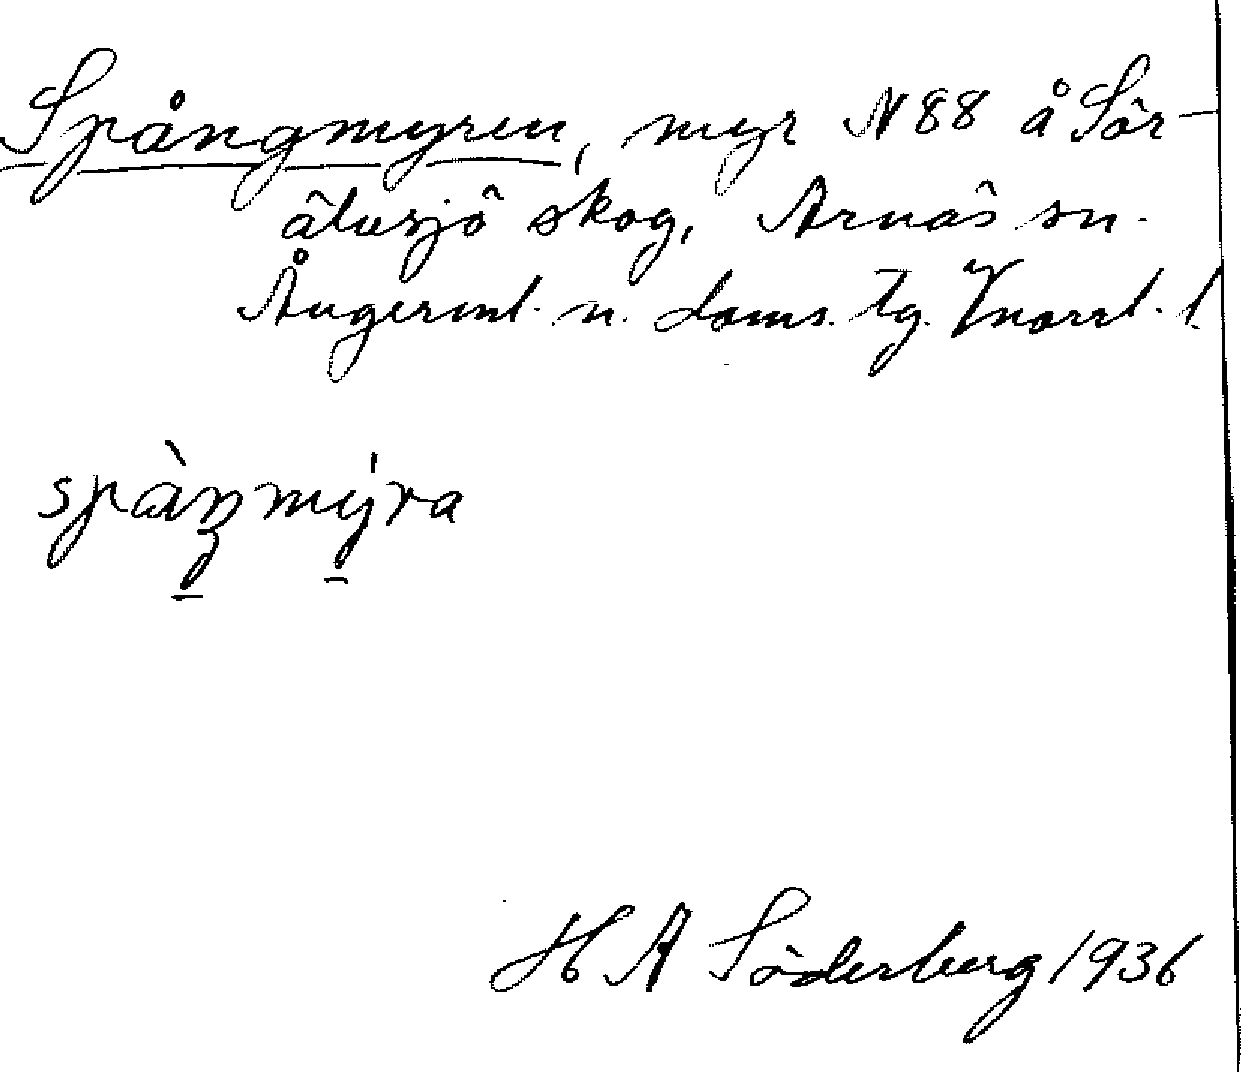 Spångmyren, myr N 88 å Sör-
älvsjö skog, Arnäs sn.
Ångerml. n. doms. tg. Vnorrl. l.
spàŋmýra
H A Söderberg 1936